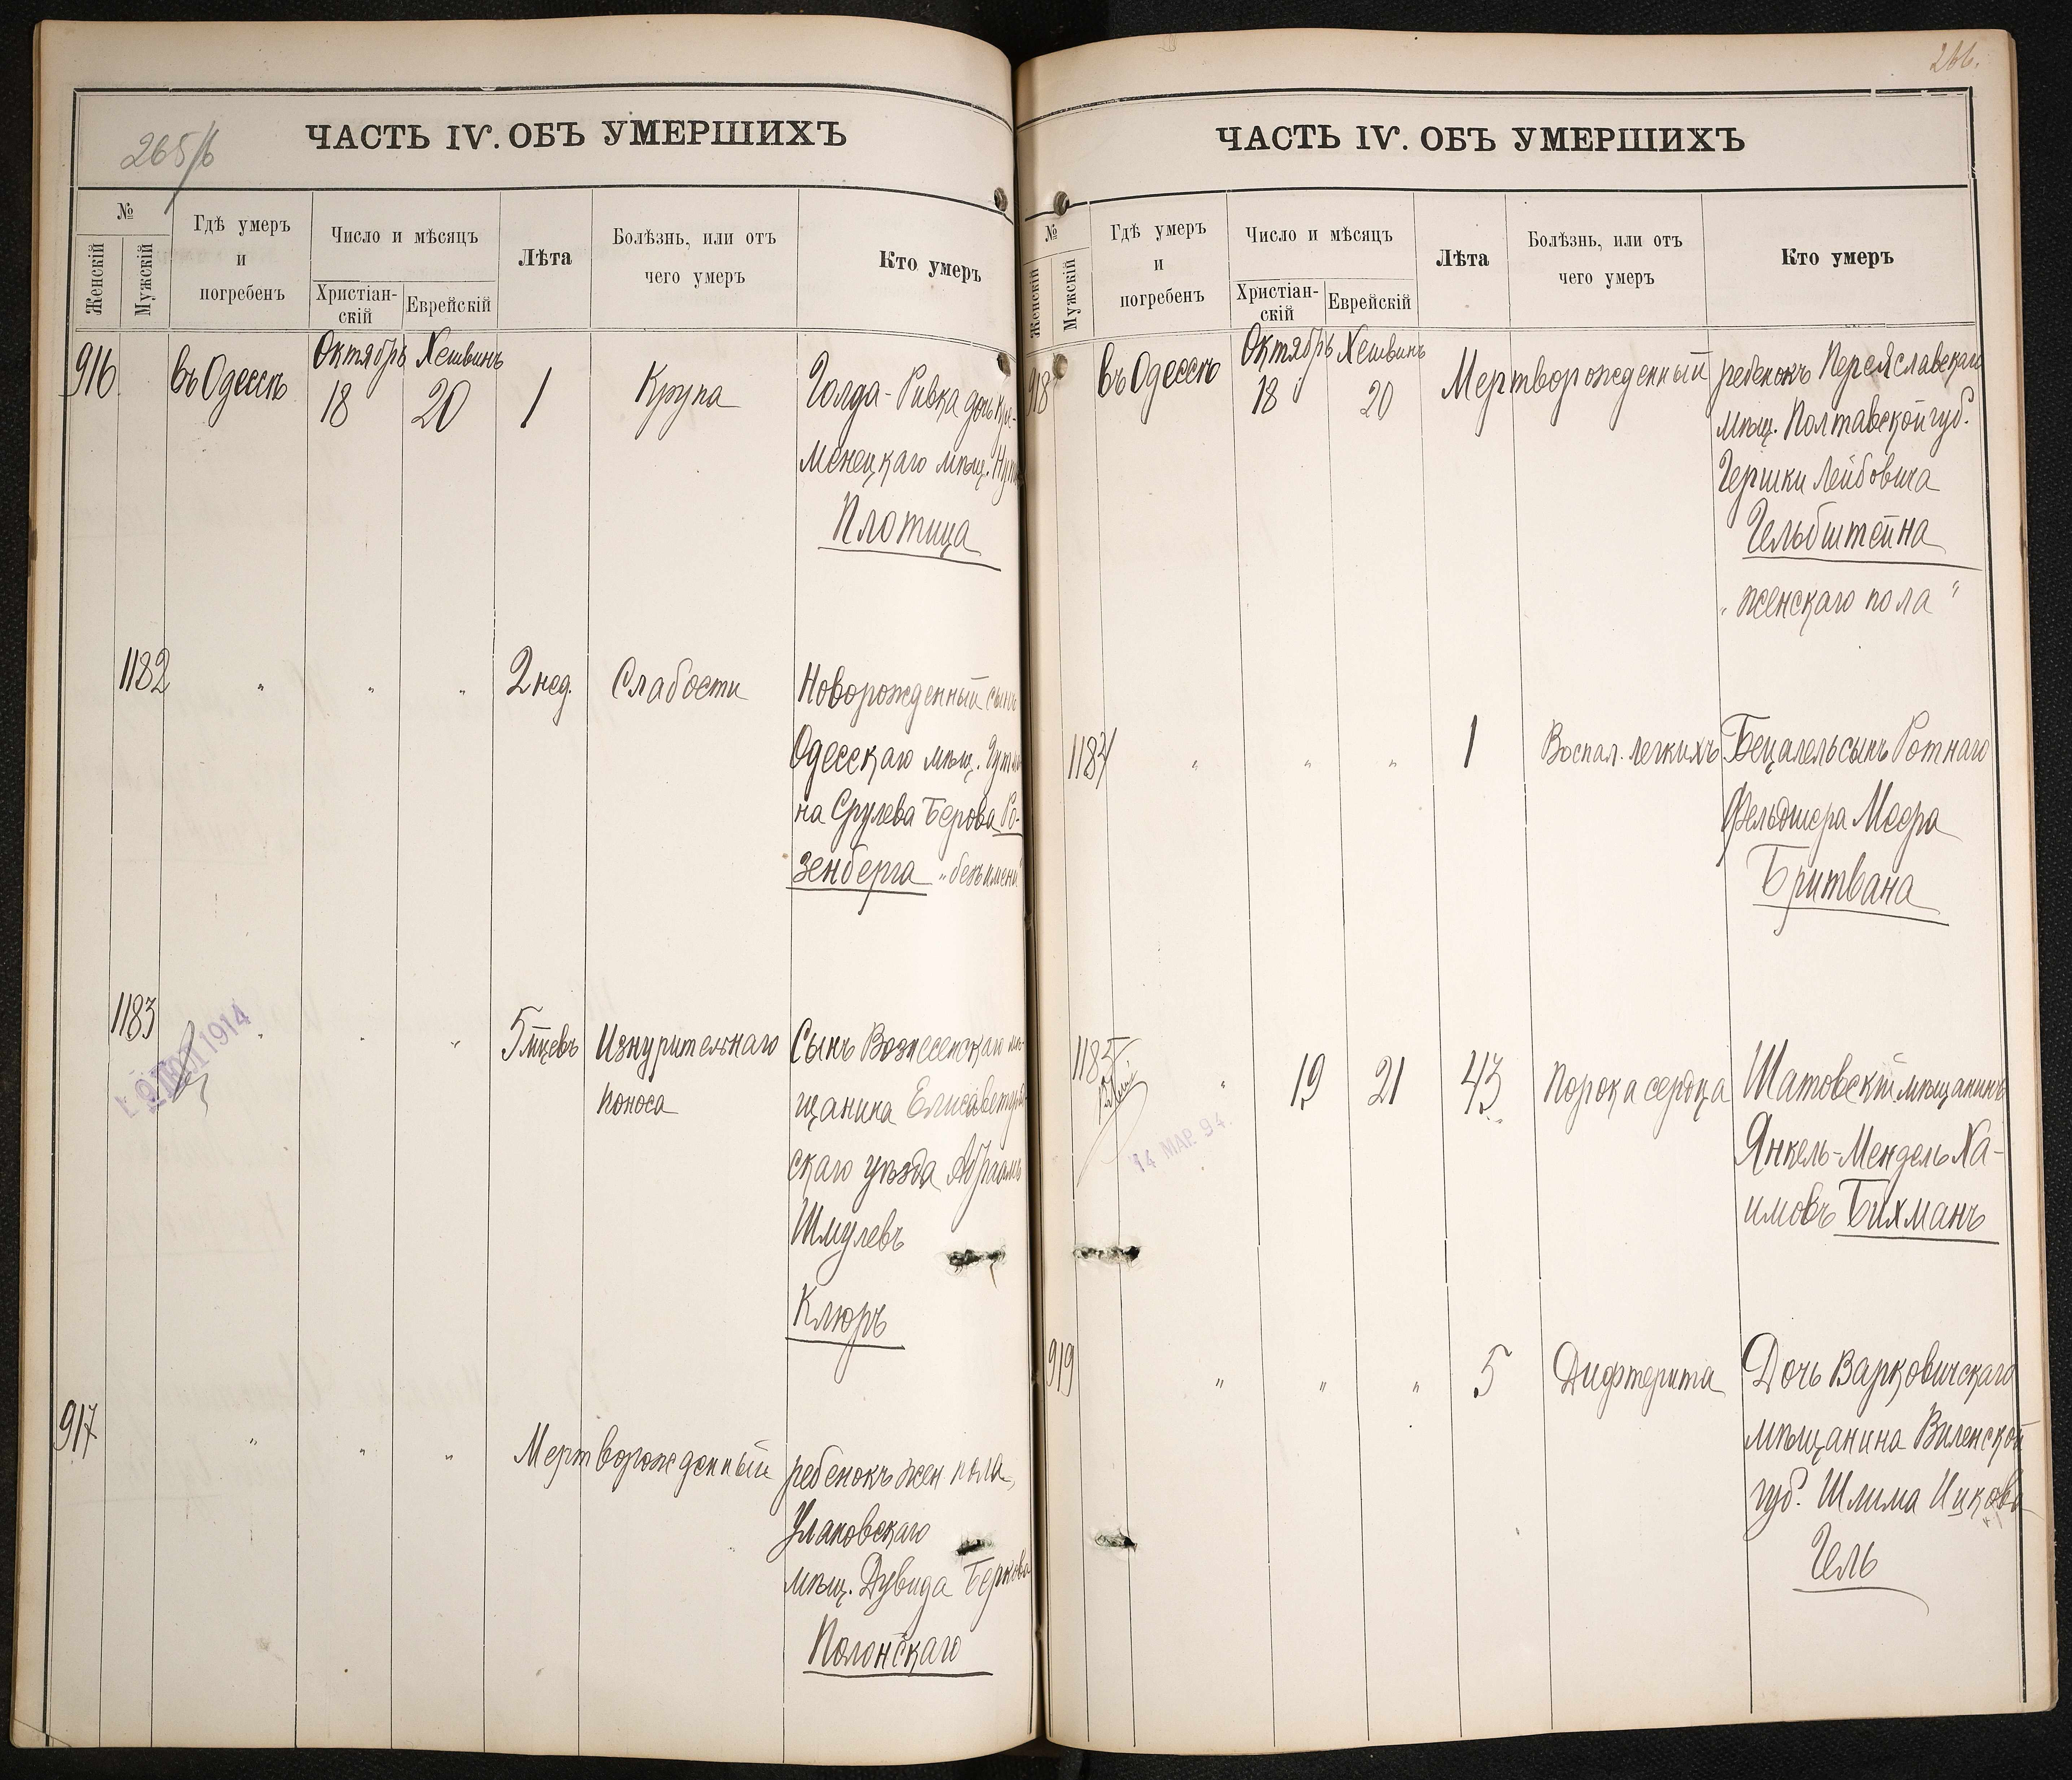 265/б
ЧАСТЬ IV. ОБЪ УМЕРШИХЪ
№
Женскій
Мужскій
Гдѣ умеръ
и
погребенъ
Число и мѣсяцъ
Христіан-
скій
Еврейскій
Лѣта
Болѣзнь, или отъ
чего умеръ
Кто умеръ
Октябрь Хешвинъ
916 въ Одессѣ 18 20 1 Крупа Голда-Ривка дочь Кре-
менецкаго мѣщ.
Плотица
1182 " " " 2 нед. Слабости Новорожденный сынъ
Одесскаго мѣщ. Гутма
на Срулева Берова Ро-
зенберга "безъ имени"
1183 " " " 5 мцевъ Изнурительнаго Сынъ Вознесенскаго мѣ-
поноса щанина Елисаветград-
скаго уѣзда Абрамъ
Шмулевъ
Клюръ
1914
917 " " " Мертворожденный ребенокъ жен. пола,
Улановскаго
мѣщ. Дувида Беркова
Полонскаго
266.
ЧАСТЬ IV. ОБЪ УМЕРШИХЪ
№
Женскій
Мужскій
Гдѣ умеръ
и
погребенъ
Число и мѣсяцъ
Христіан-
скій
Еврейскій
Лѣта
Болѣзнь, или отъ
чего умеръ
Кто умеръ
Октябрь Хешвинъ
918 въ Одессѣ 18 20 Мертворожденный ребенокъ Переяславскаго
мѣщ. Полтавской губ.
Гершки Лейбовича
Гельбштейна
"женскаго пола"
1184 " " " 1 Воспал. легкихъ Бецалель сынъ Ротнаго
Фельдшера Меера
Бритвана
1185 " 19 21 43 Порока сердца Шатовскій мѣщанинъ
Янкель-Мендель Ха-
имовъ Бихманъ
14 МАР. 94.
919 " " " 5 Дифтерита Дочь Варковичскаго
мѣщанина Виленской
губ. Шлима Ицкова
Гель